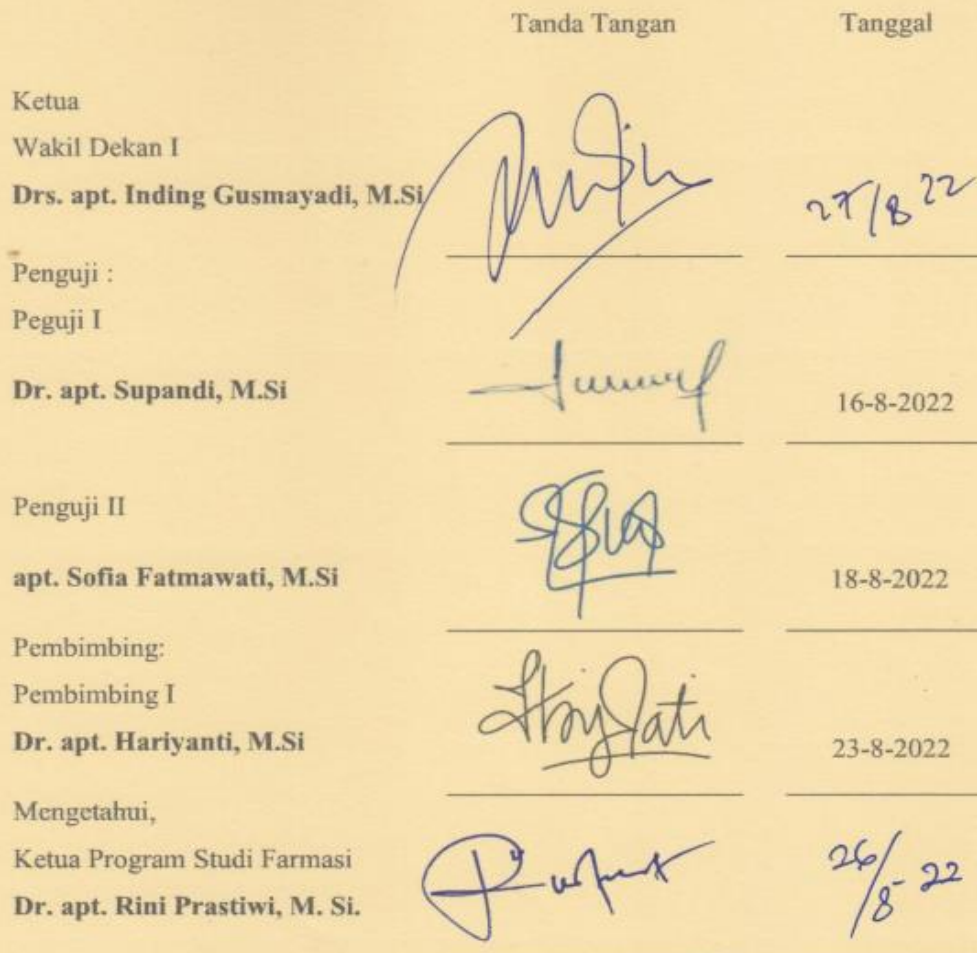 Tanda Tangan Tanggal
Ketua
Wakil Dekan I
Drs. apt. Inding Gusmayadi, M.Si 27/8 22
Penguji :
Peguji I
Dr. apt. Supandi, M.Si 16-8-2022
Penguji II
apt. Sofia Fatmawati, M.Si 18-8-2022
Pembimbing:
Pembimbing I
Dr. apt. Hariyanti, M.Si 23-8-2022
Mengetahui,
Ketua Program Studi Farmasi 26/8 22
Dr. apt. Rini Prastiwi, M. Si.